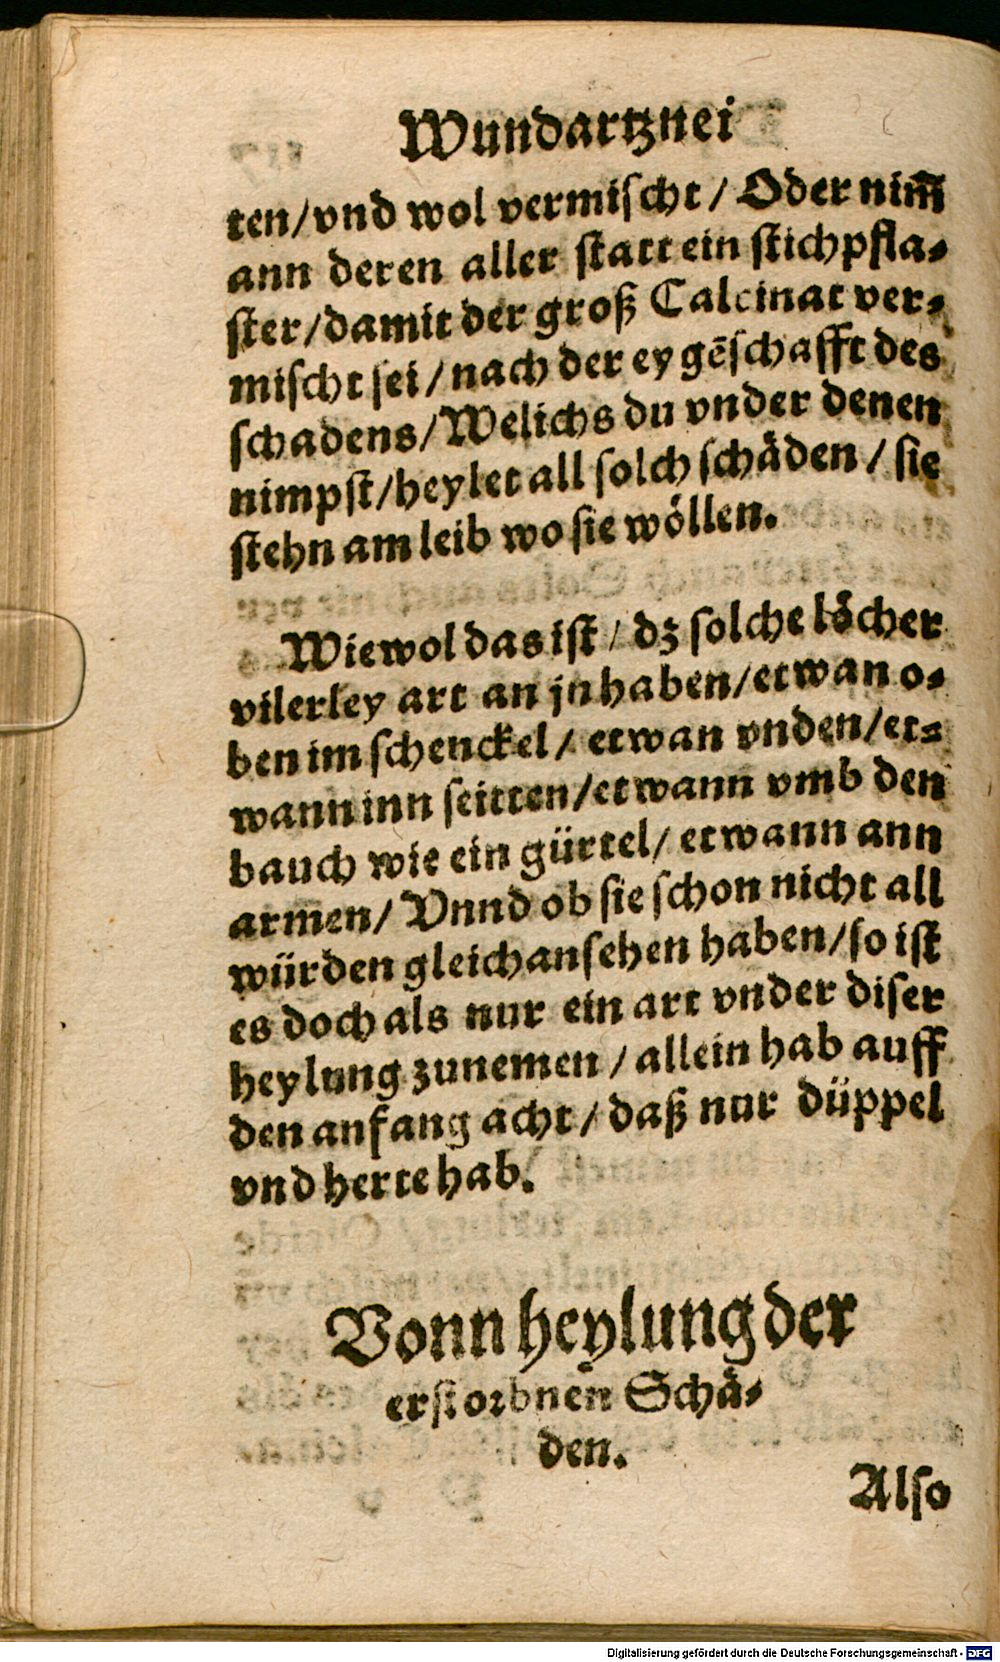 Wundartznei
ten/vnd wol vermiſcht/ Oder nim̃
ann deren aller ſtatt ein ſtichpfla⸗
ſter/damit der groß Calcinat ver⸗
miſcht ſei/nach der eygẽſchafft des
ſchadens/Welichs du vnder denen
nimpſt/heylet all ſolch ſchaͤden/ ſie
ſtehn am leib wo ſie woͤllen.
Wiewol das iſt/ dz ſolche loͤcher
vilerley art an jn haben/etwan o⸗
ben im ſchenckel/ etwan vnden/et⸗
wann inn ſeitten/etwann vmb den
bauch wie ein guͤrtel/ etwann ann
armen/ Vnnd ob ſie ſchon nicht all
wuͤrden gleich anſehen haben/ſo iſt
es doch als nur ein art vnder diſer
heylung zunemen/allein hab auff
den anfang acht/daß nur duͤppel
vnd herte hab.
Vonn heylung der
erſtorbnen Schaͤ⸗
den.
Alſo
Digitalisierung gefördert durch die Deutsche Forschungsgemeinschaft - DFG